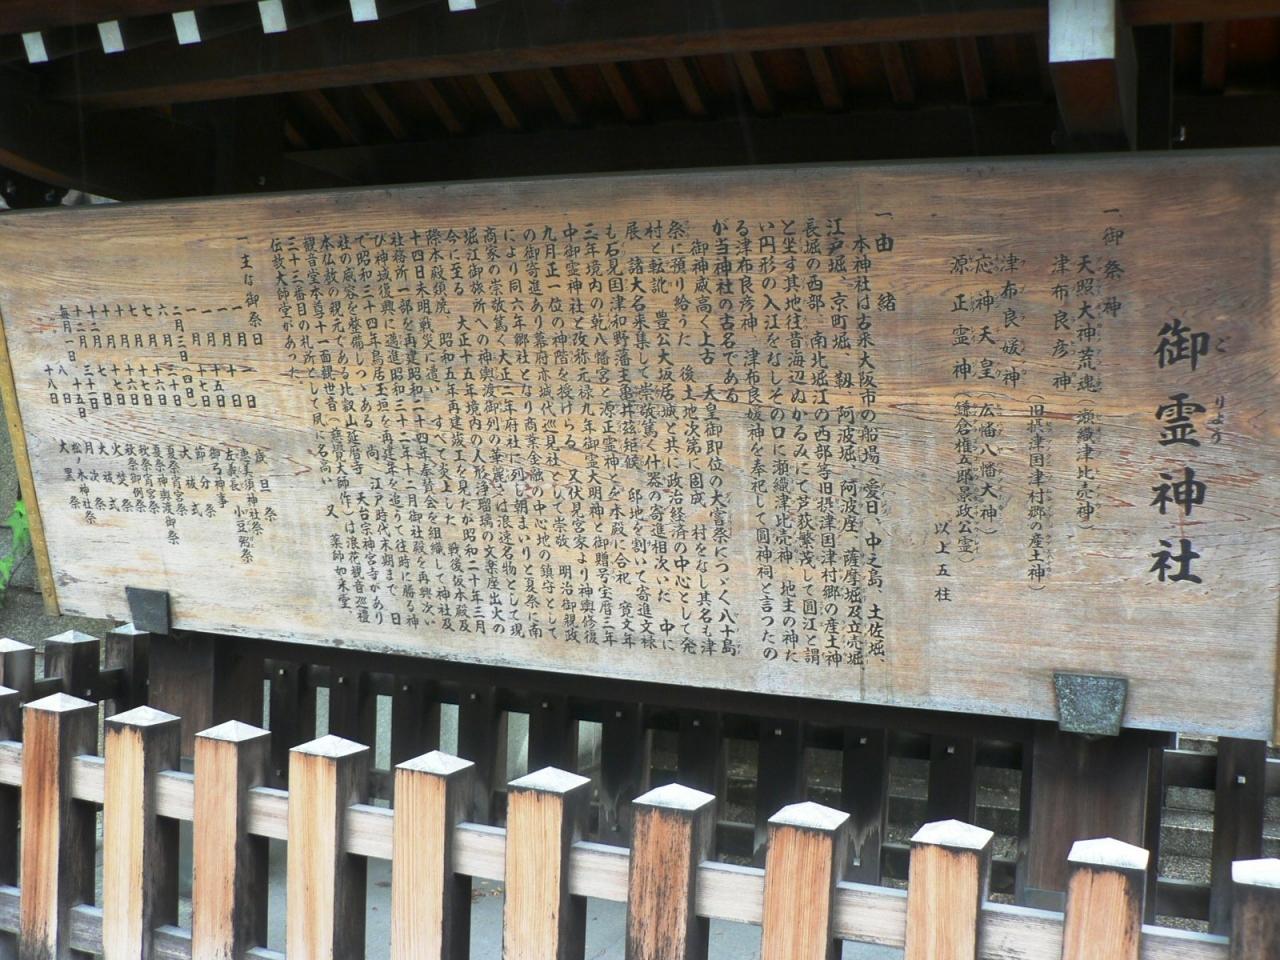 御霊神社
ごりょう
一 御祭神
天照大神荒魂 瀬織津比売神
津布良彦神
津布良媛神 (旧摂津国津村郷の産土神)
応神天皇 (広幡八幡大神)
源正霊神 (鎌倉権五郎景政公霊)
以上五柱
一 由緒
本神社は古来大阪市の船場、愛日、中之島、土佐堀、
江戸堀、京町堀、靱、阿波堀、阿波座、薩摩堀及立売堀、
長堀の西部、南北堀江の西部等旧摂津国津村郷の産土神
と坐す其地往昔海辺ぬかるみにて芦荻繁茂して圓江と謂
い円形の入江をなしその口に瀬織津比売神、地主の神た
る津布良彦神、津布良媛神を奉祀して圓神祠と言つたの
が当神社の古名である
御神威高く上古 天皇御即位の大嘗祭につゞく八十島
祭に預り給うた 後土地次第に固成、村をなし其名も津
村と転訛、豊公大坂居城と共に政治経済の中心として発
展、諸大名来集して崇敬篤く什器の寄進相次いだ 中に
も石見国津和野藩主亀井茲矩候、邸地を割いて寄進文禄
三年境内の乾八幡宮と源正霊神とを本殿に合祀、寛文年
中御霊神社と改称元禄九年御霊大明神と御贈号宝暦三年
九月正一位の神階を授けらる 又伏見宮家より神輿修復
の御寄進あり幕府亦城代巡見社として崇敬、明治御親政
により同六年郷社となり商業金融の中心地の鎮守として
商家の崇敬篤く大正二年府社に列し朝まいりと夏祭に南
堀江御旅所への神輿渡御列の華麗さは浪速名物として現
今に至る 大正十五年境内の人形浄瑠璃の文楽座出火の
際本殿類焼 昭和五年再建竣工を見たが昭和二十年三月
十四日未明戦災に遭いすべて炎上した 戦後仮本殿及
社務所一部を再建昭和二十四年奉賛会を組織して神社及
び神域復興に邁進昭和三十二年十二月御社殿を再興次い
で昭和三十四年鳥居玉垣を再建年を追うて往時に勝る神
社の威容を整備しつゝある 尚、江戸時代末期まで、日
本仏教の親元である比叡山延暦寺、天台宗神宮寺があり
観音堂本尊十一面観世音(慈覚大師作)は浪花観音巡禮
三十三番目の札所として夙に名高い 又、薬師如来堂、
伝教大師堂があった
一 主な御祭
一月一日 歳旦祭